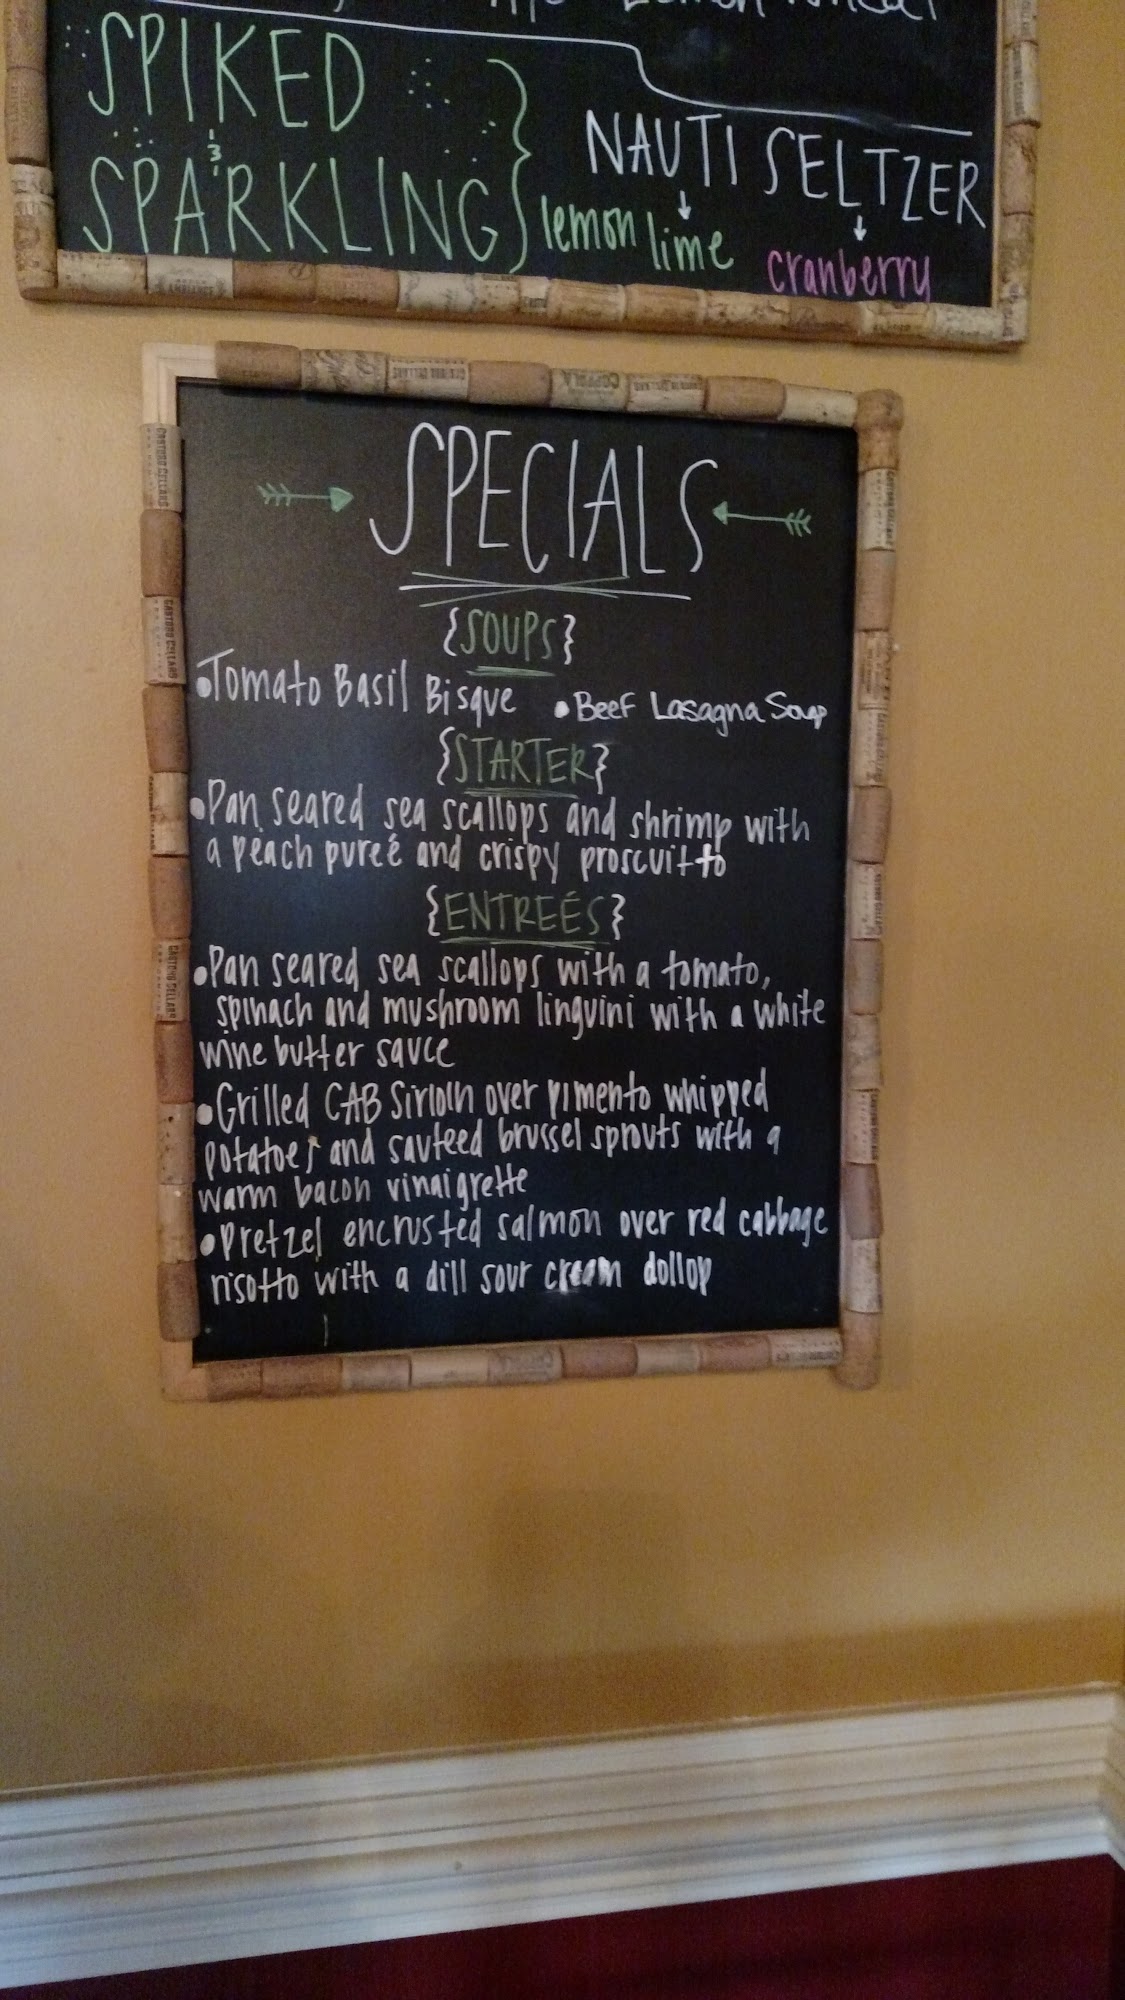 SPIKED
&
SPARKLING
NAUTI SELTZER
lemon lime
cranberry
SPECIALS
{SOUPS}
•Tomato Basil Bisque •Beef Lasagna Soup
{STARTER}
•Pan seared sea scallops and shrimp with
a peach pureé and crispy proscuitto
{ENTREÉS}
•Pan seared sea scallops with a tomato,
spinach and mushroom linguini with a white
wine butter sauce
•Grilled CAB Sirloin over pimento whipped
potatoes and sauteed brussel sprouts with a
warm bacon vinaigrette
•Pretzel encrusted salmon over red cabbage
risotto with a dill sour cream dollop